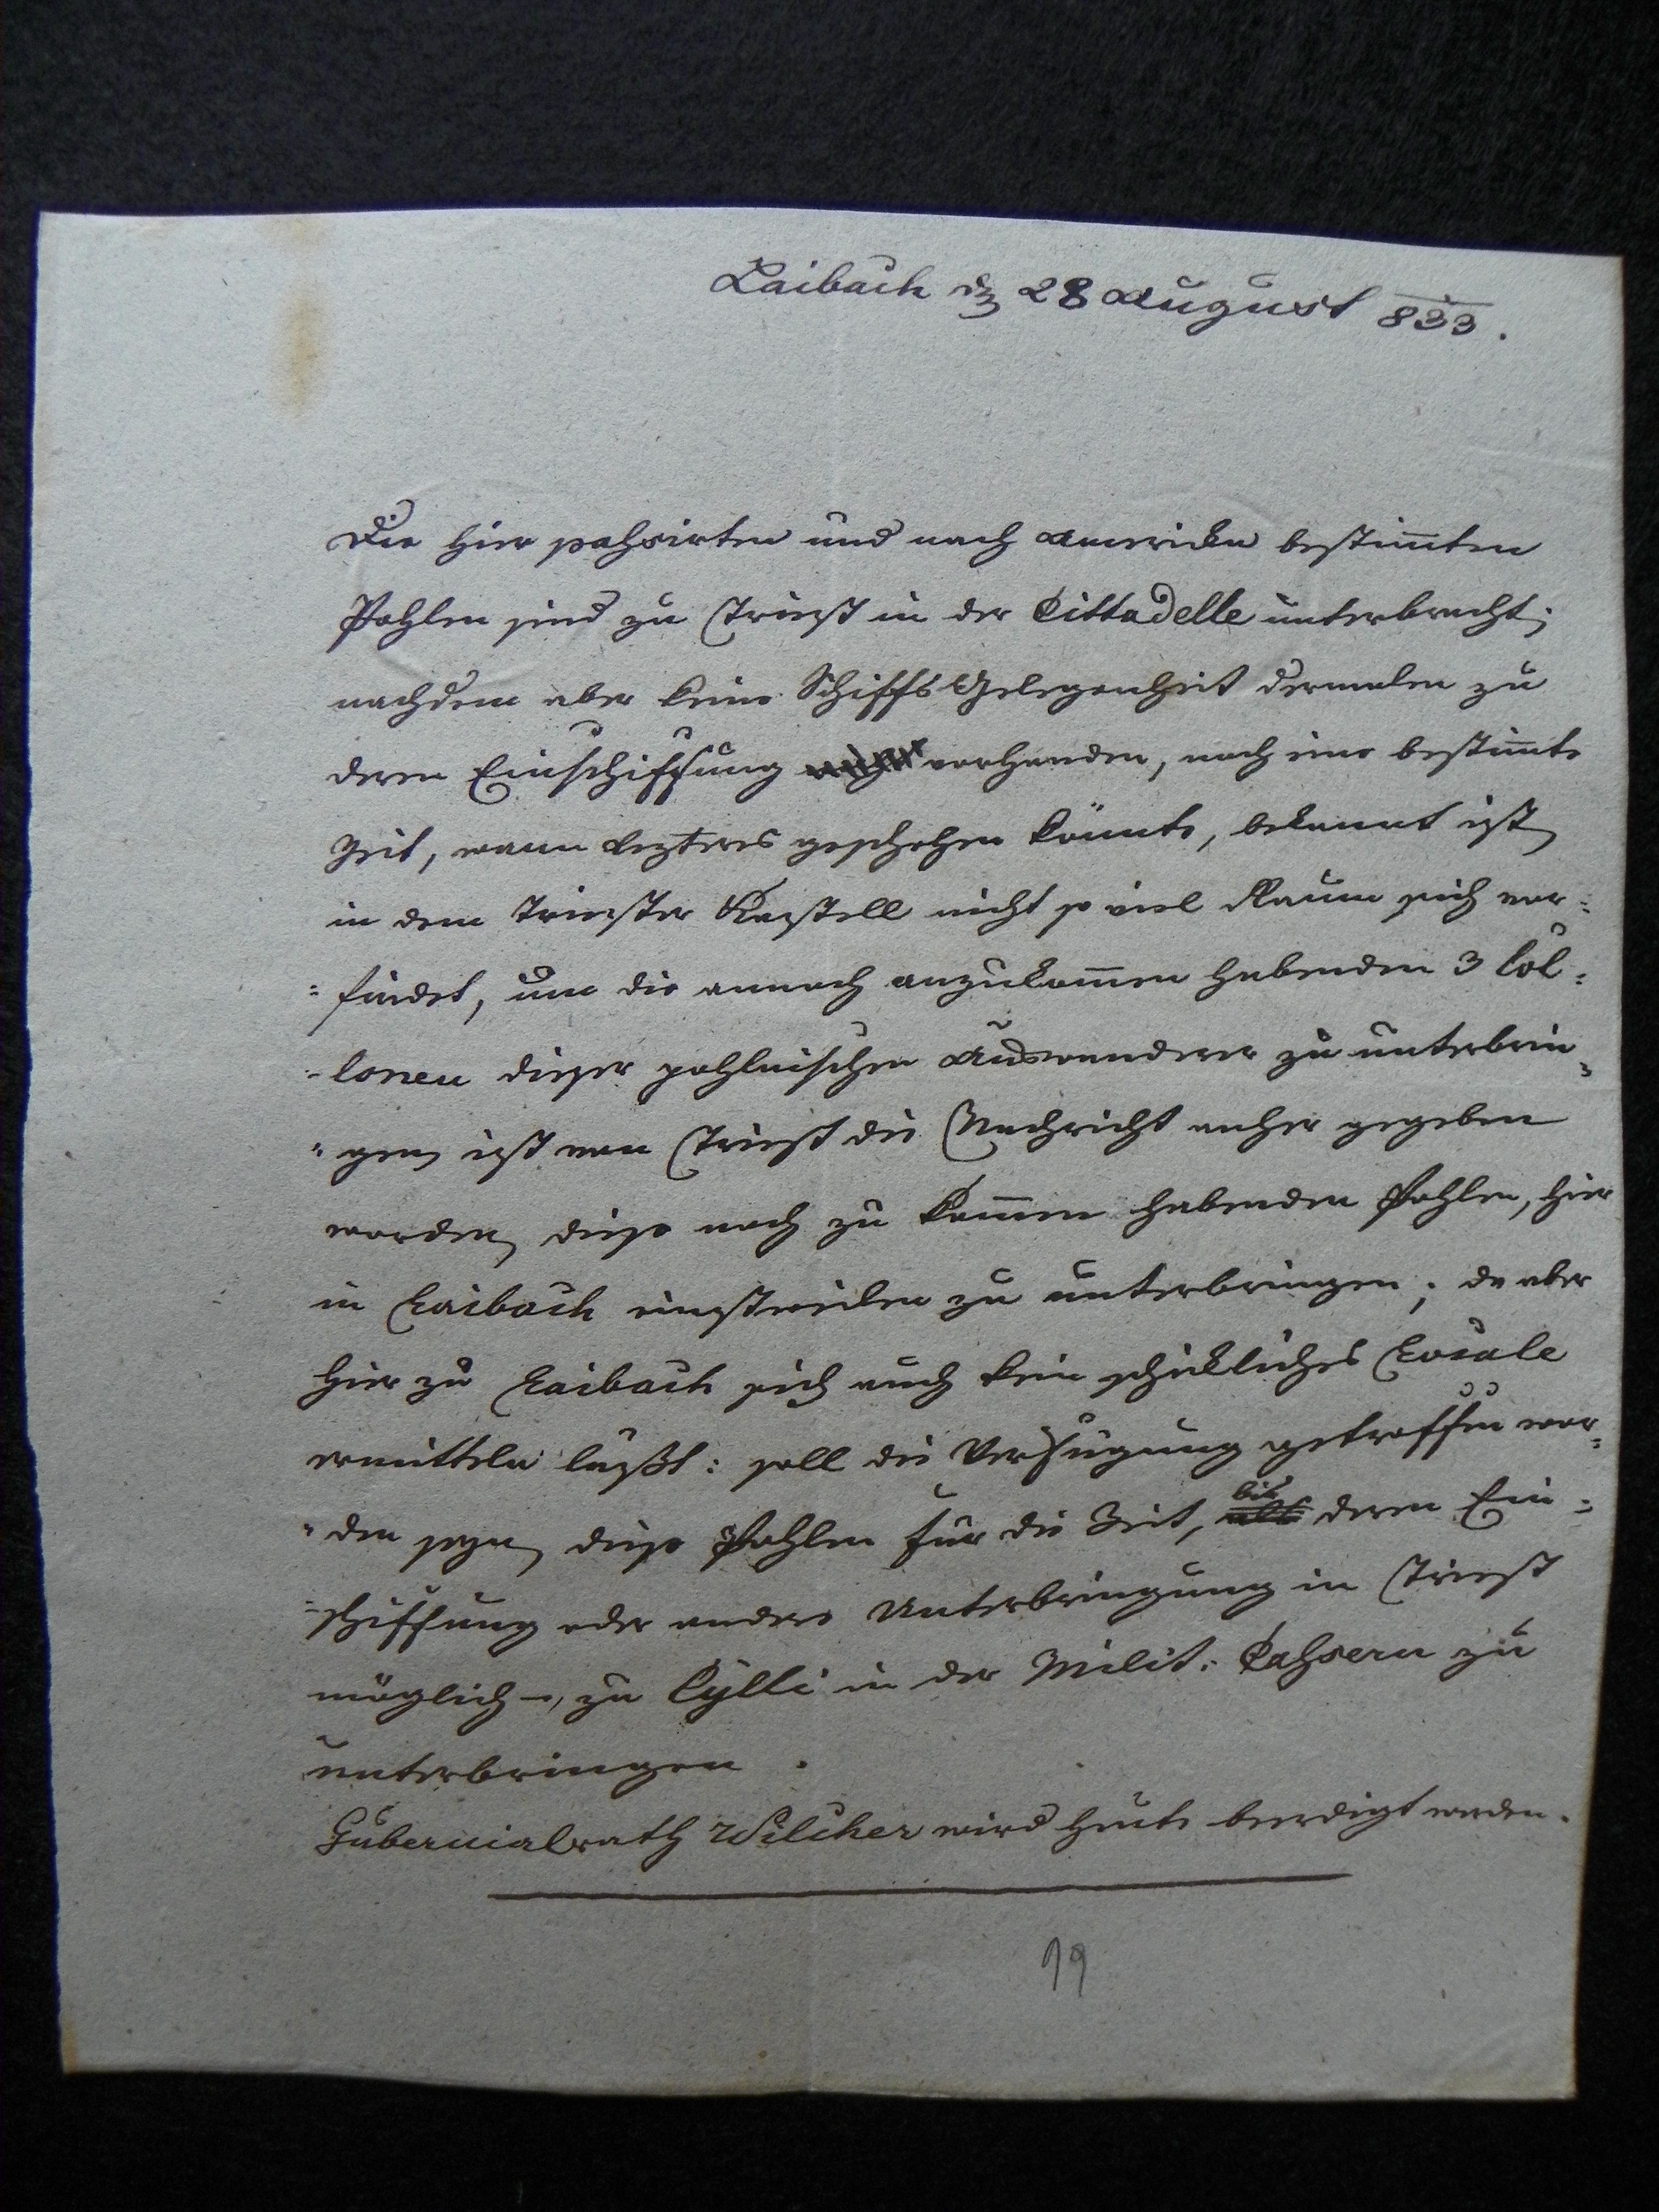 Laibach den 28 August 833.
Die hier pahsirten und nach America bestim̄ten
Pohlen sind zu Triest in der Cittadelle unterbracht;
nachdem aber keine Schiffs Gelegenheit dermalen zu
deren Einschiffung nicht vorhanden, noch eine bestim̄te
Zeit, wann lezteres geschehen könnte, bekannt ist,
in dem Triester Kastell nicht so viel Raum sich vor=
=findet, um die annoch anzukom̄en habenden 3 Col=
=lonen dieser pohlnischen Auswanderer zu unterbrin=
=gen, ist von Triest die Nachricht anher gegeben
worden, diese noch zu kom̄en habenden Pohlen, hier
in Laibach einstweilen zu unterbringen; da aber
hier zu Laibach sich auch kein schickliches Locale
ermitteln läßt: soll die Verfügung getroffen wor=
=den seyn, diese Pohlen für die Zeit, bis deren Ein=
=schiffung oder andere Unterbringung in Triest
möglich –, zu Cylli in der Milit: Cahsern zu
unterbringen.
Gubernialrath Wilcher wird heute beerdigt werden.
19